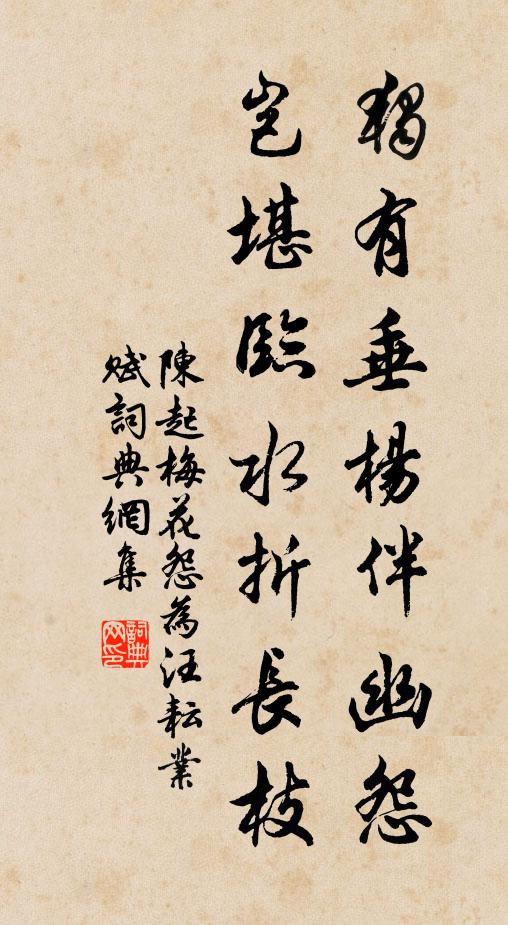 獨有垂楊伴幽怨
豈堪臨水折長枝
陳起梅花怨為汪耘業
賦詞典網集
詞典網印